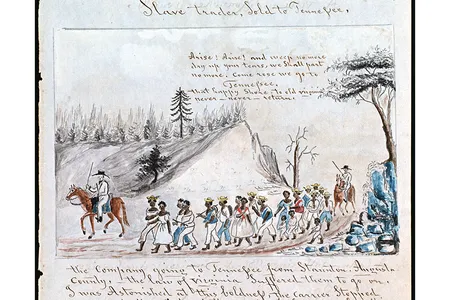 Slave trader, Sold to Tennessee,
Arise! Arise! and weep no more
dry up your tears, we Shall part
no more. Come rose we go to
Tennessee,
that happy Shore. to old virginia
never — never — return.
the Company going to Tennessee from Staunton, Augusta
County, — the law of Virginia Suffered them to go on.
I was Astonished at this boldness, the carrier Stopped